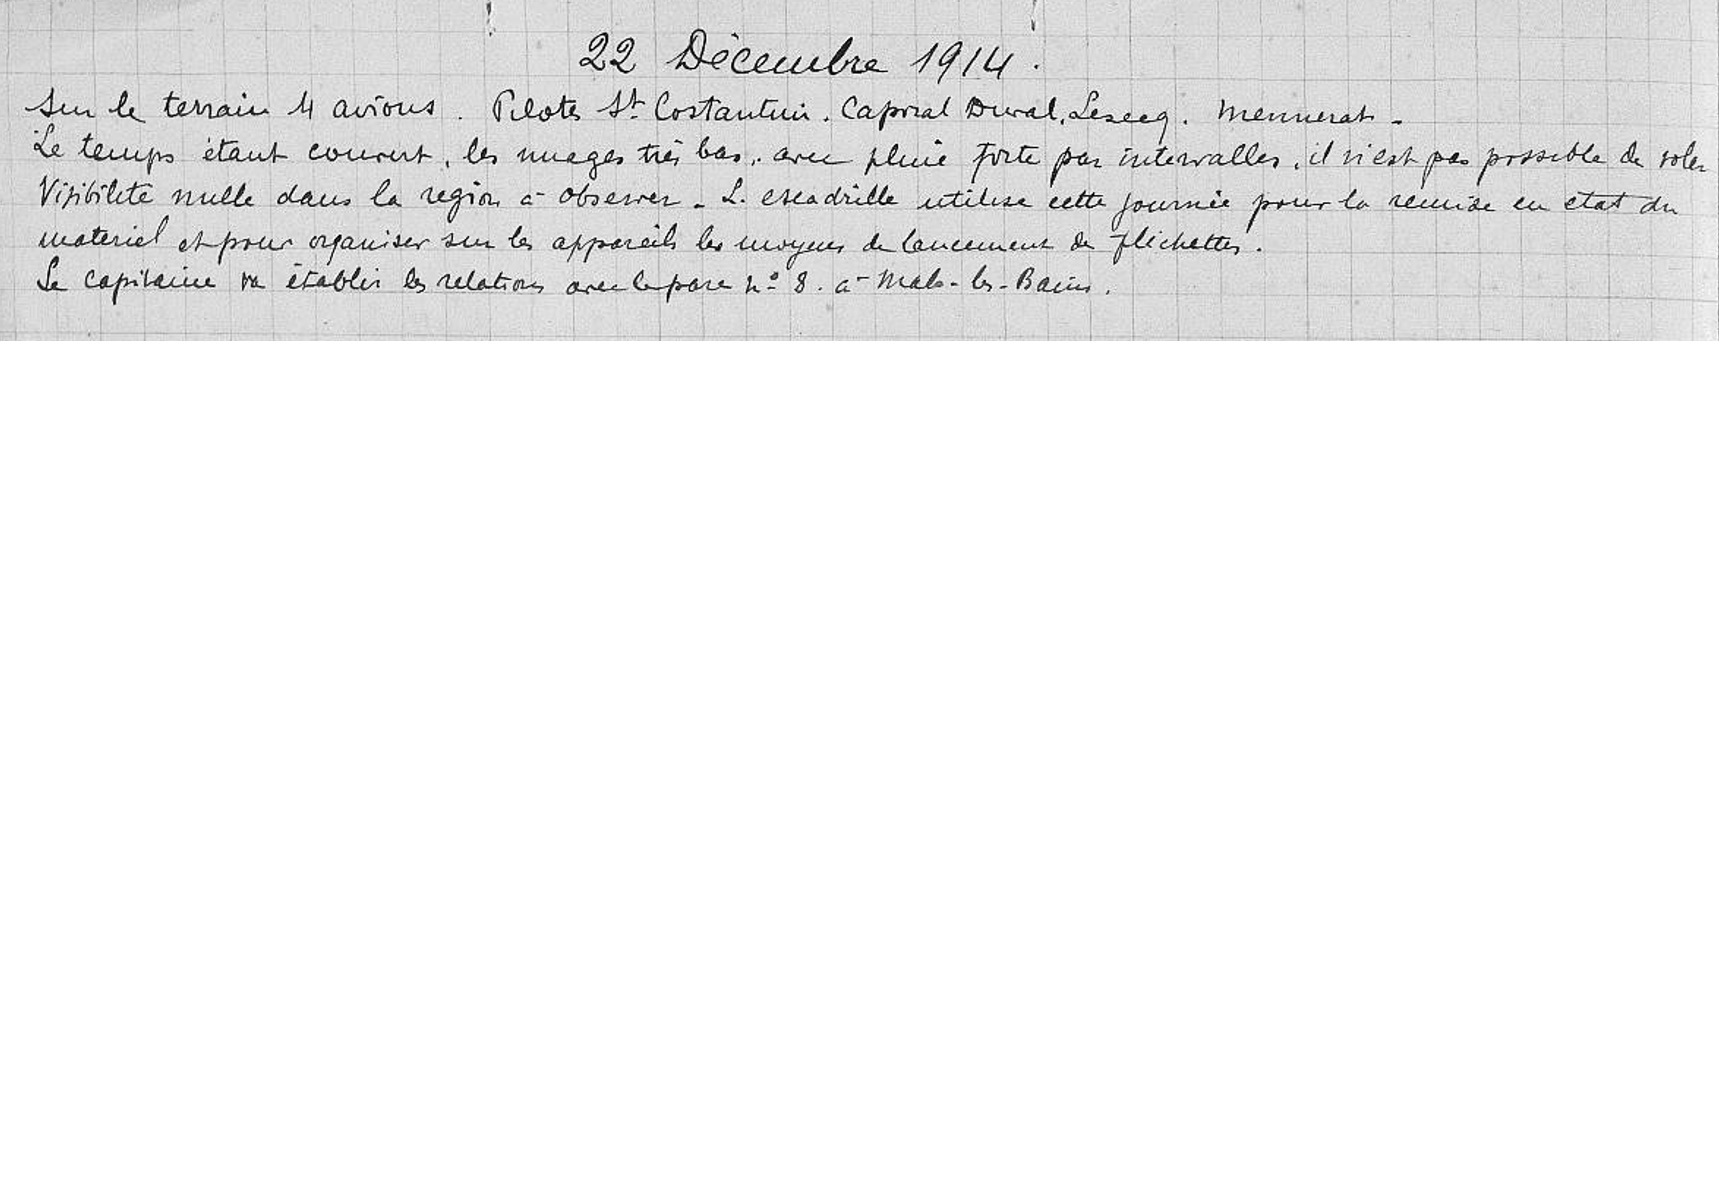 22 Décembre 1914.
Sur le terrain 4 avions. Pilotes St Costantini. Caporal Duval, Lesecq. Mennerat -
Le temps étant couvert, les nuages très bas, avec pluie forte par intervalles, il n'est pas possible de voler
Visibilité nulle dans la region à observer - L'escadrille utilise cette journée pour la remise en etat du
materiel et pour organiser sur les appareils les moyens de lancement de flêchettes.
Le capitaine va établir les relations avec le parc n° 8. à Malo-les-Bains.